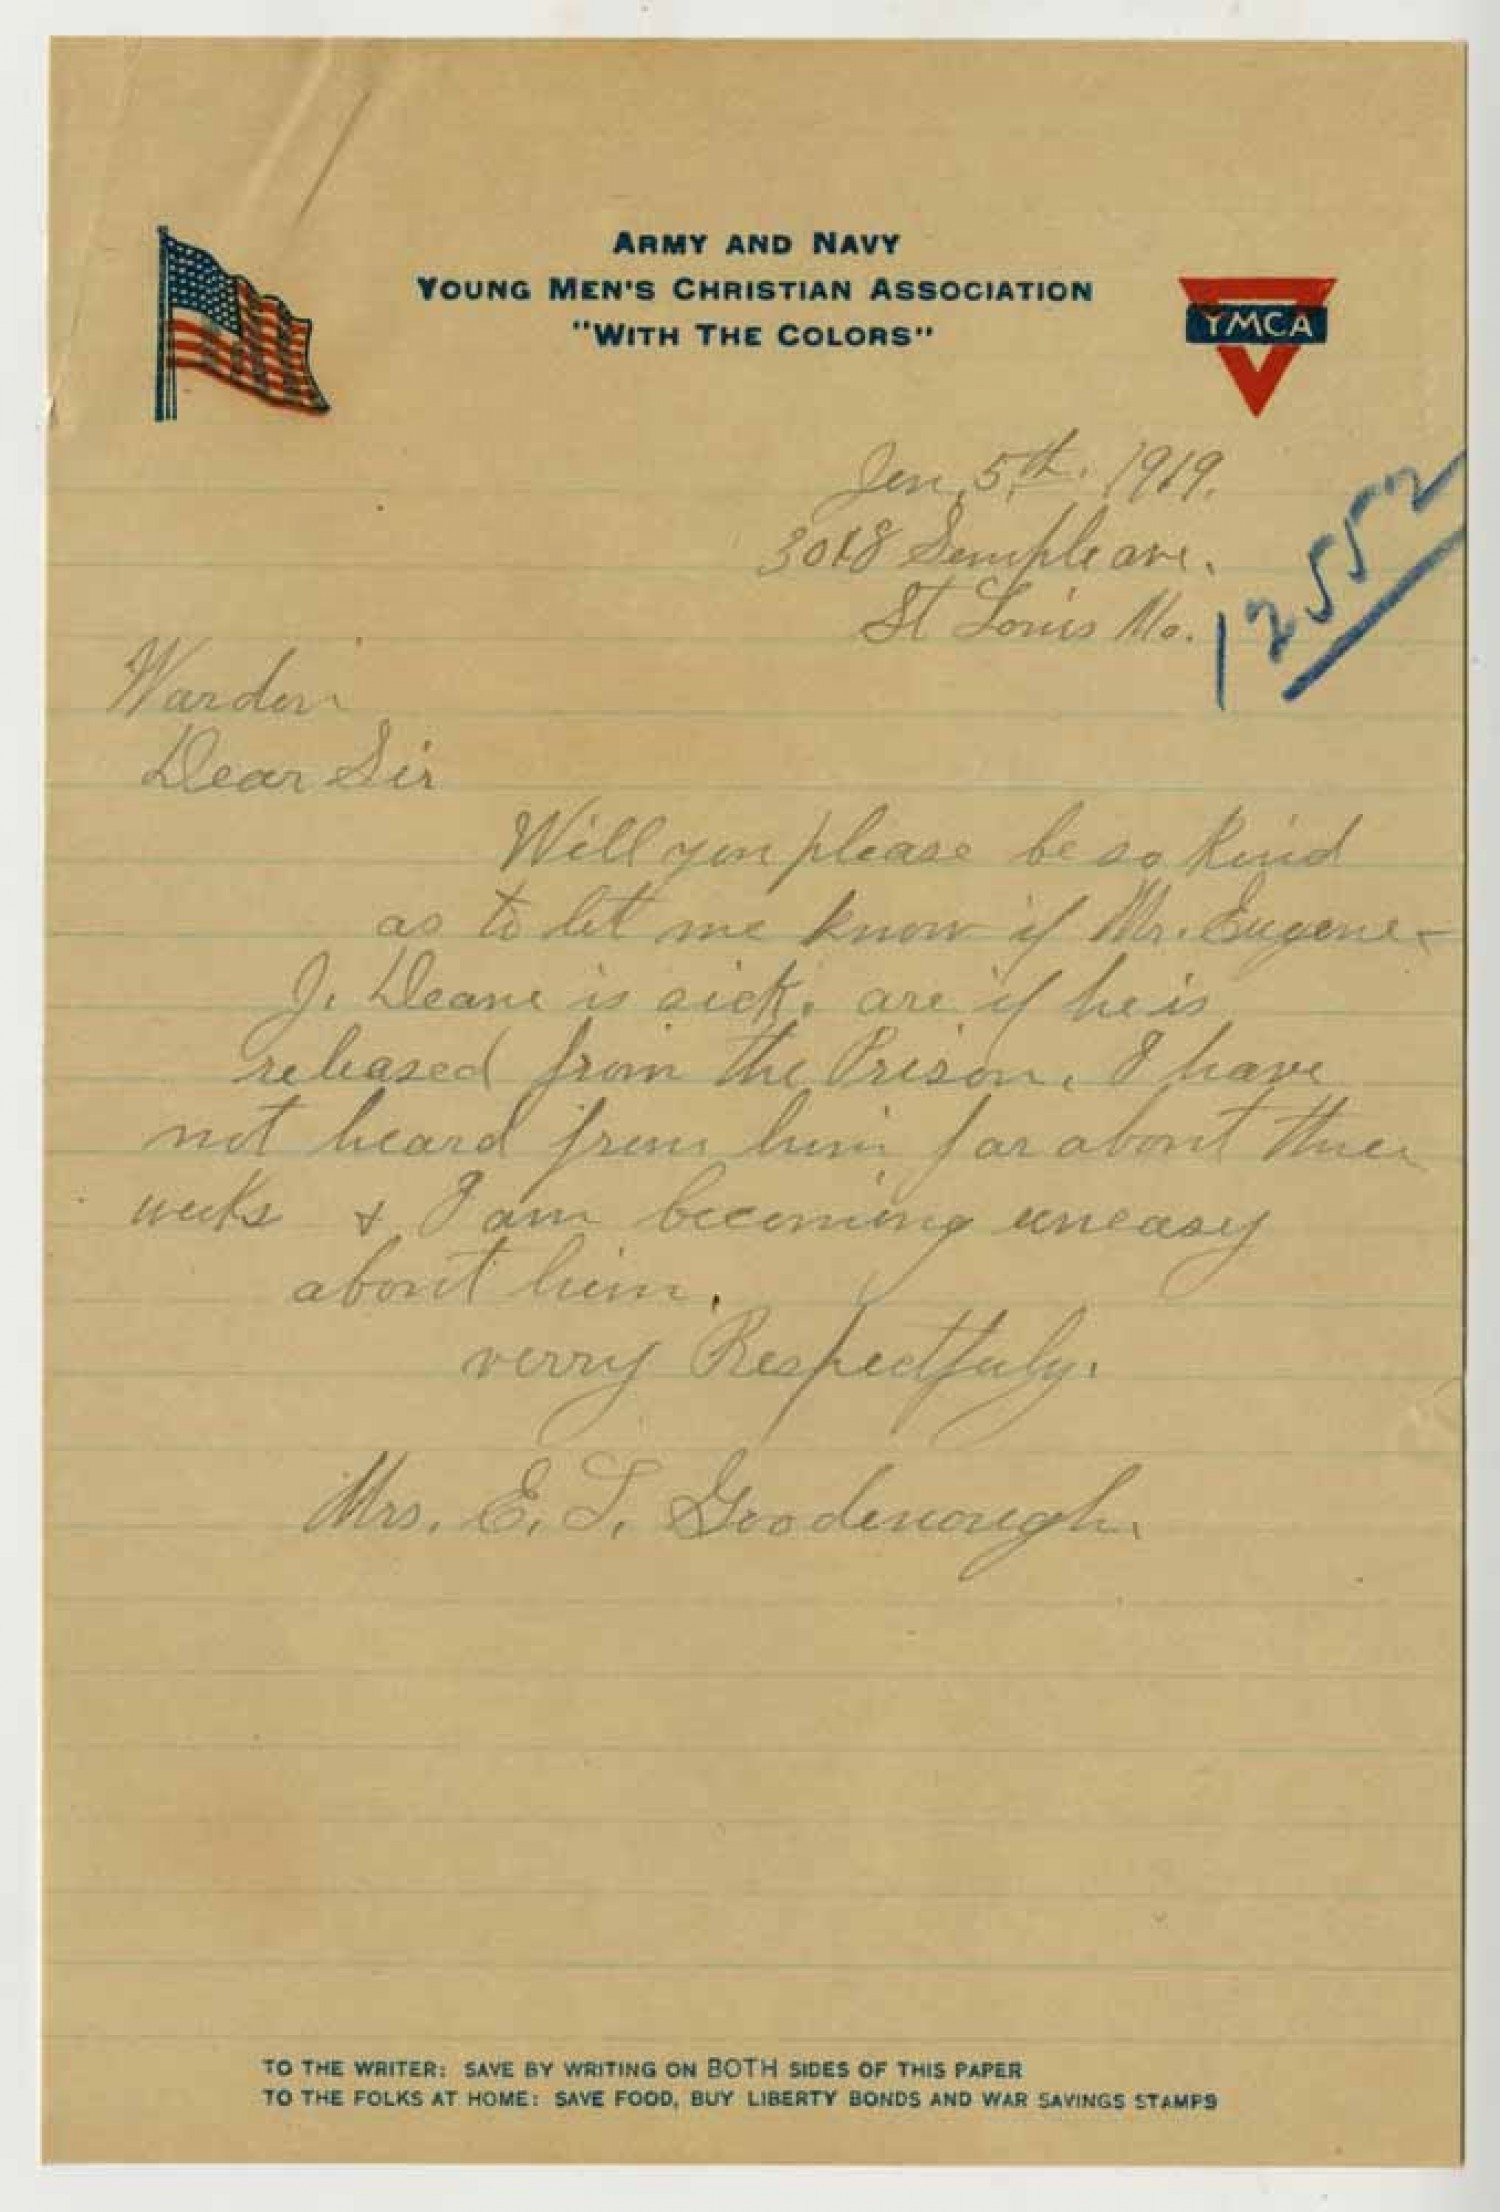 ARMY AND NAVY
YOUNG MEN'S CHRISTIAN ASSOCIATION
"WITH THE COLORS"
YMCA
Jan, 5th. 1919.
3018 Semple ave.
St Louis Mo.
12552
Warden
Dear Sir
Will you please be so kind
as to let me know if Mr. Eugene
J. Deane is sick. are if he is
released from the Prison. I have
not heard from him for about three
weeks & I am becoming uneasy
about him.
verry Respectfuly.
Mrs. E. T. Goodenough.
TO THE WRITER: SAVE BY WRITING ON BOTH SIDES OF THIS PAPER
TO THE FOLKS AT HOME: SAVE FOOD, BUY LIBERTY BONDS AND WAR SAVINGS STAMPS